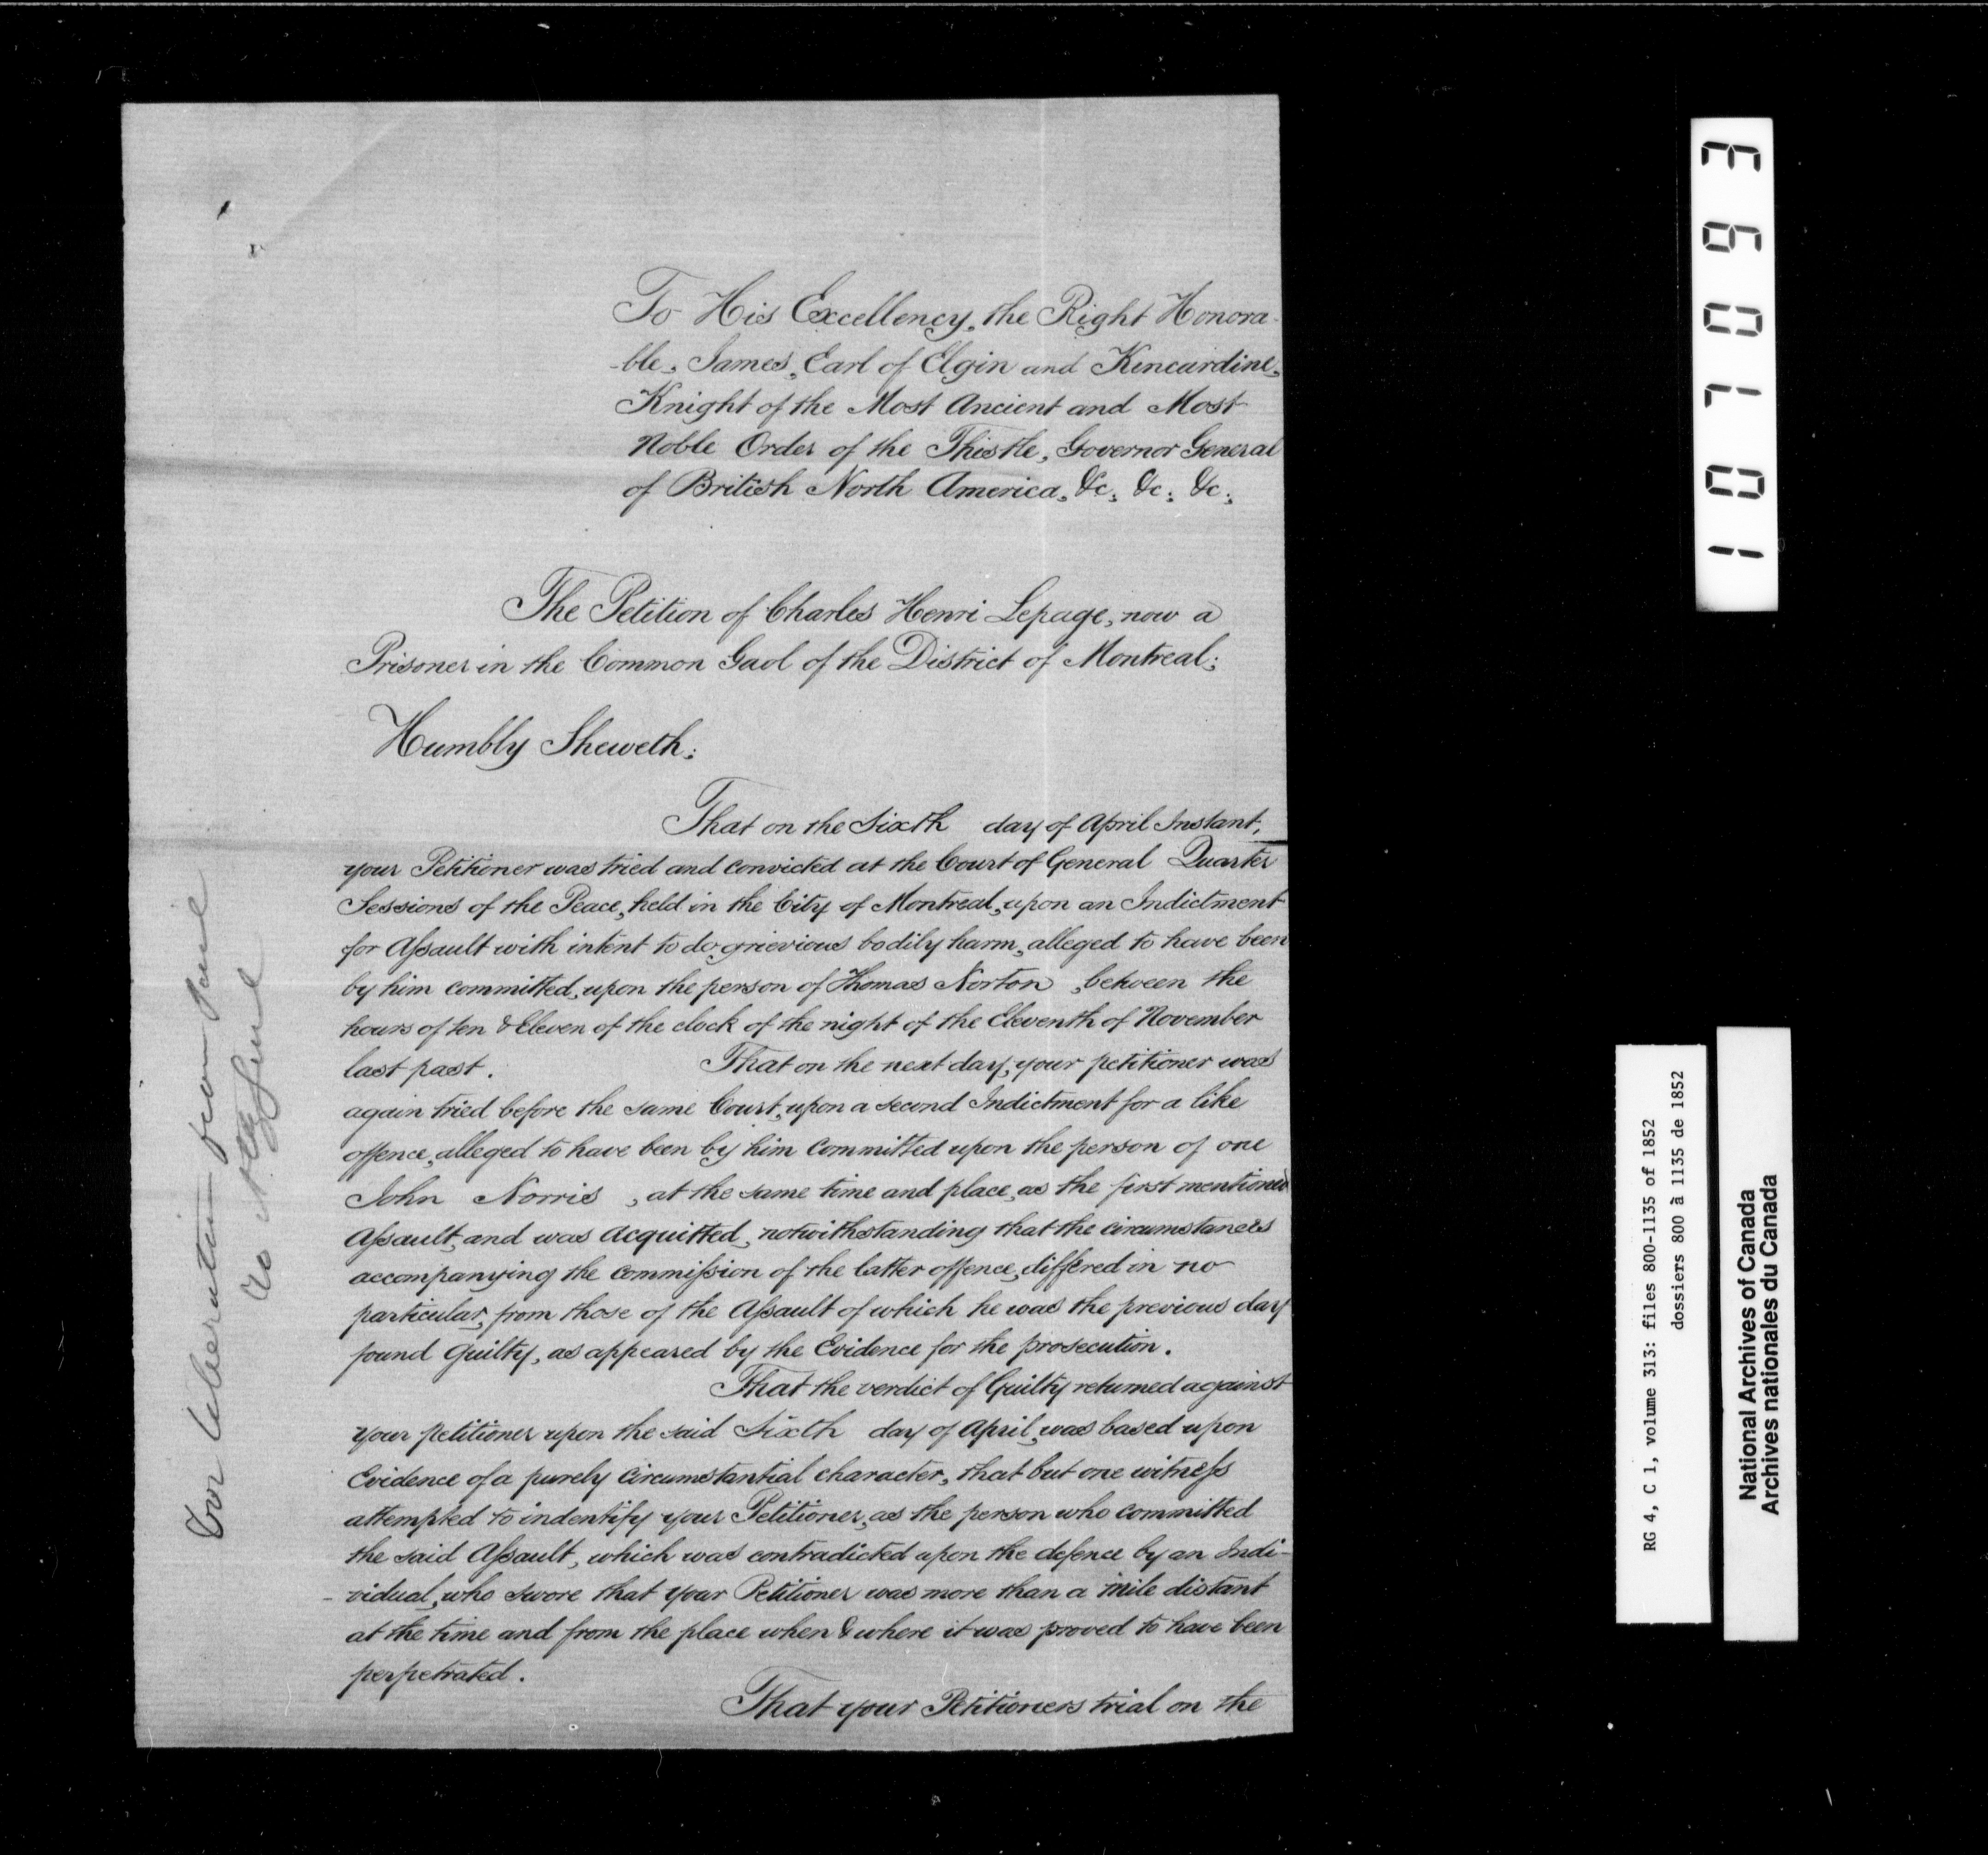 To His Excellency, the Right Honora-
-ble, James, Earl of Elgin and Kincardine,
Knight of the Most Ancient and Most
Noble Order of the Thistle, Governor General
of British North America, &c, &c, &c,
The Petition of Charles Henri Lepage, now a
Prisoner in the Common Gaol of the District of Montreal;
Humbly Sheweth;
That on the Sixth day of April Instant,
your Petitioner was tried and convicted at the Court of General Quarter
Sessions of the Peace, held in the City of Montreal, upon an Indictment
for Assault with intent to do grievious bodily harm, alleged to have been
by him committed, upon the person of Thomas Norton, between the
hours of ten & Eleven of the clock of the night of the Eleventh of November
last past. That on the next day, your petitioner was
again tried before the same Court, upon a second Indictment for a like
offence, alleged to have been by him committed upon the person of one
John Norris, at the same time and place, as the first mentioned
Assault, and was Acquitted, notwithstanding that the circumstances
accompanying the commission of the latter offence, differed in no
particular, from those of the Assault of which he was the previous day
found Guilty, as appeared by the Evidence for the prosecution.
That the verdict of Guilty returned against
your petitioner upon the said Sixth day of April, was based upon
Evidence of a purely circumstantial character, that but one witness
attempted to indentify your Petitioner, as the person who committed
the said Assault, which was contradicted upon the defence by an Indi-
-vidual, who swore that your Petitioner was more than a mile distant
at the time and from the place when & where it was proved to have been
perpetrated.
That your Petitioners trial on the
For liberation from
101063
RG 4, C 1, volume 313: files 800-1135 of 1852
dossiers 800 à 1135 de 1852
National Archives of Canada
Archives nationales du Canada